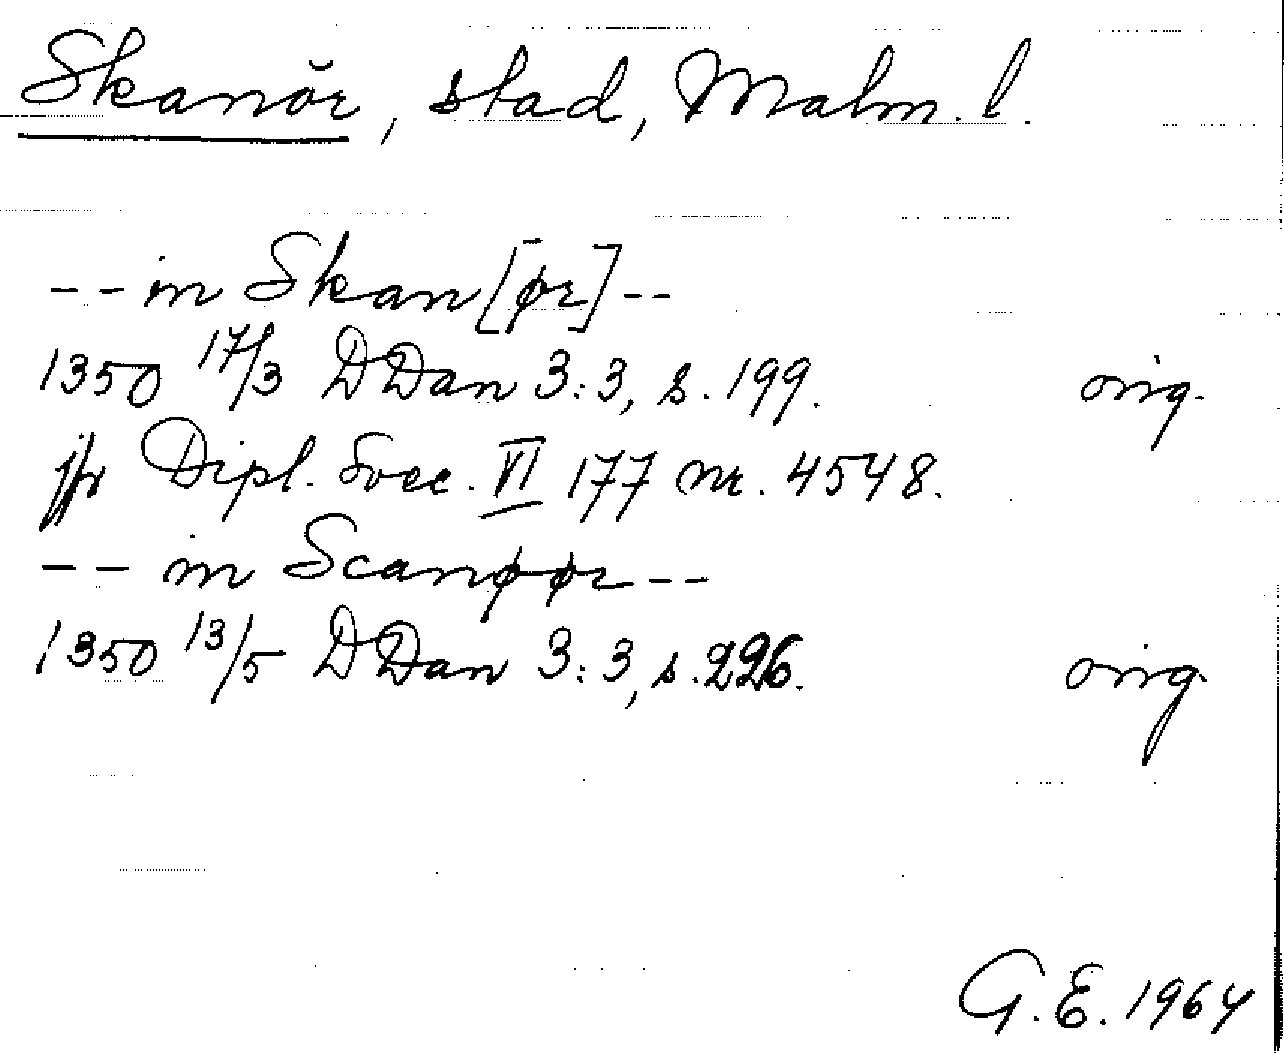 Skanör, stad, Malm. l.
-- in Skan[ør] --
1350 17/3 DDan 3:3, s. 199. orig.
jfr Dipl. Svec. VI 177 nr. 4548.
-- in Scanøør --
1350 13/5 DDan 3:3, s. 226. orig.
G. E. 1964